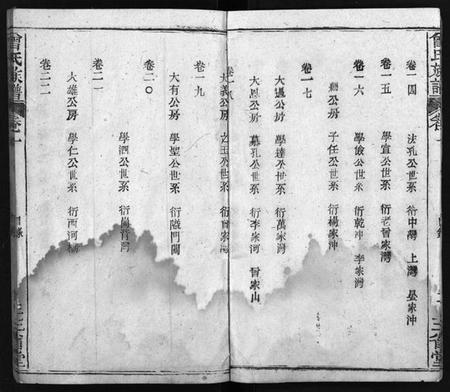 曾氏族譜
卷一
目錄
三省堂
卷一四
法孔公世系 衍中灣 上灣 晏家沖
卷一五
學宣公世系 衍老曾家灣
卷一六
學儉公世系 衍乾沖 李家灣
子任公世系 衍楊家沖
卷一七
大選公房 學達公世系 衍萬家灣
大恩公房 慕孔公世系 衍李家河 曾家山
卷一八
大義公房
卷一九
大有公房 學聖公世系 衍陸門關
卷二〇
學泗公世系
卷二一
大雄公房 學仁公世系 衍西河
卷二二
曾氏族譜
卷一
目錄
三省堂